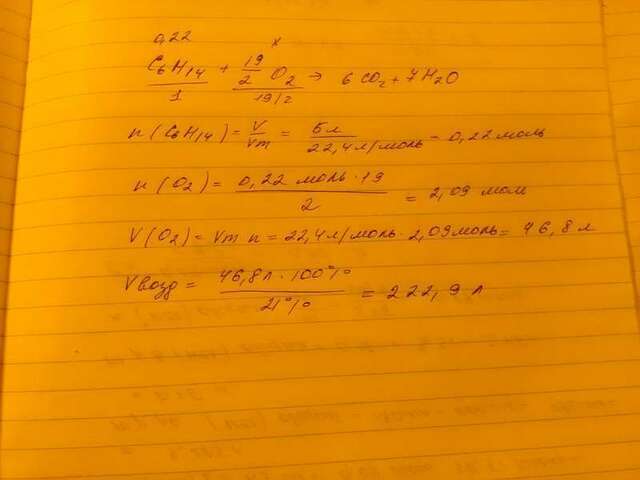 0,22 x
C6H14 + 19/2 O2 → 6 CO2 + 7H2O
1 19/2
n (C6H14) = V/Vm = 5л/22,4л/моль = 0,22 моль
n (O2) = 0,22 моль · 19/2 = 2,09 мол
V (O2) = Vm n = 22,4л/моль · 2,09моль = 46,8 л
V возд = 46,8л · 100%/21% = 222,9 л